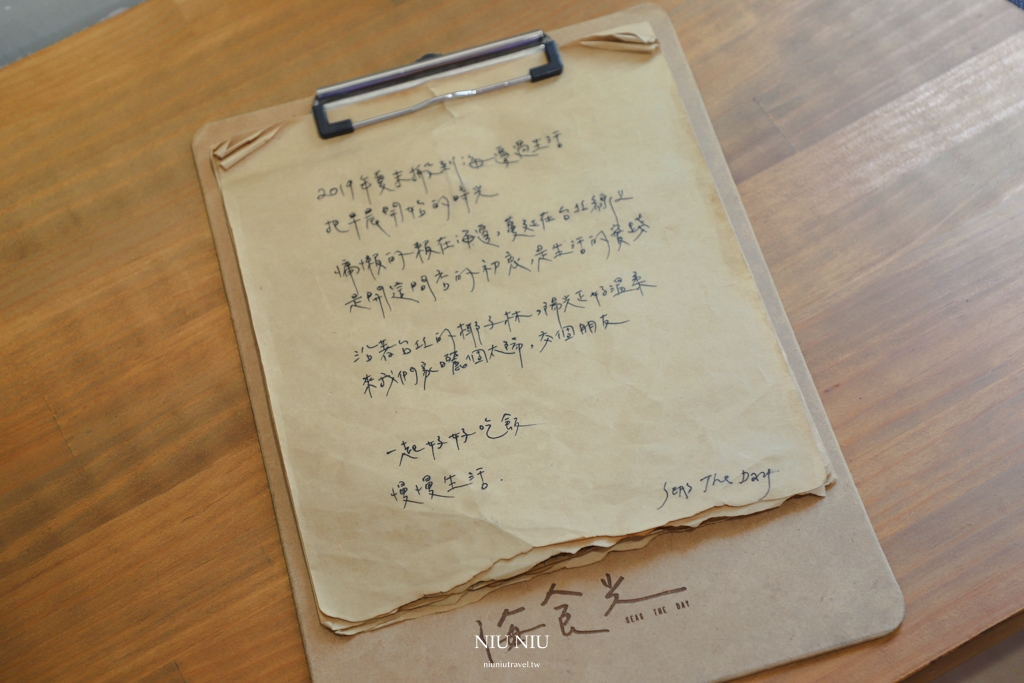 2019年夏末搬到海邊過生活
把早晨開始的時光
慵懶的賴在海邊,蔓延在台北線上
是開這間店的初衷,是生活的實踐
沿著台北的椰子林,陽光正好溫柔
來我們家曬個太陽,交個朋友
一起好好吃飯
慢慢生活.
Seas The Day
海食光
SEAS THE DAY
NIU NIU
niuniutravel.tw